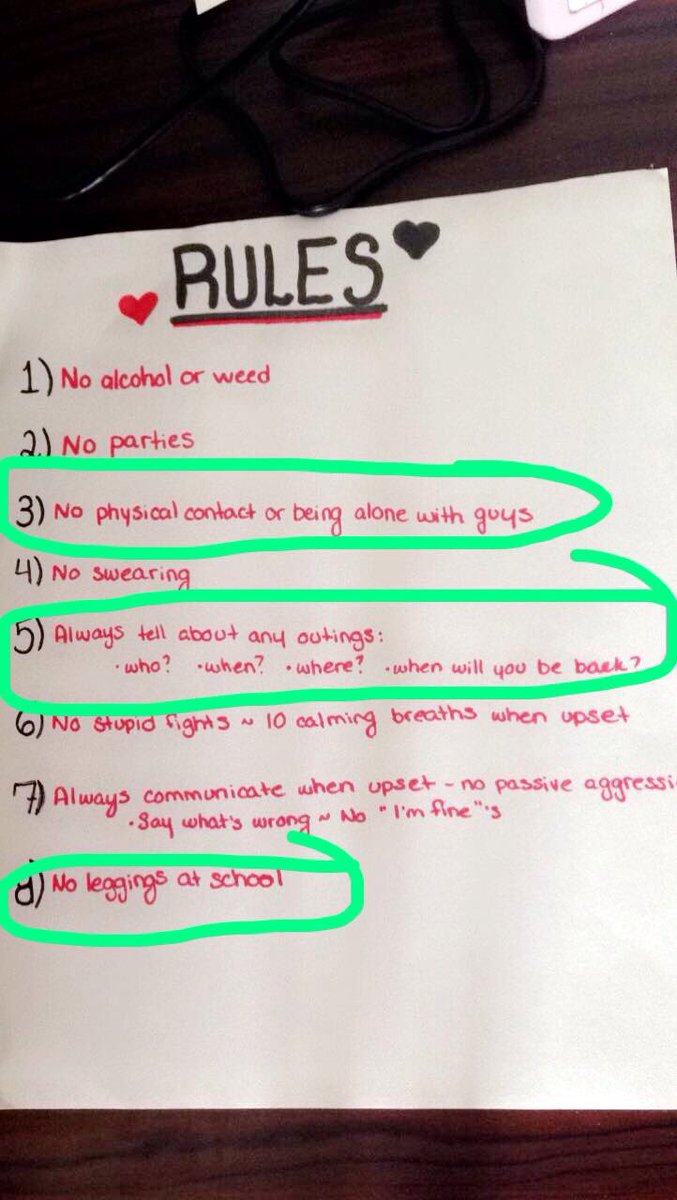 RULES
1) No alcohol or weed
2) No parties
3) No physical contact or being alone with guys
4) No swearing
5) Always tell about any outings:
· who? · when? · where? · when will you be back?
6) No stupid fights ~ 10 calming breaths when upset
7) Always communicate when upset - no passive aggressi
· Say what's wrong ~ No "I'm fine"'s
8) No leggings at school